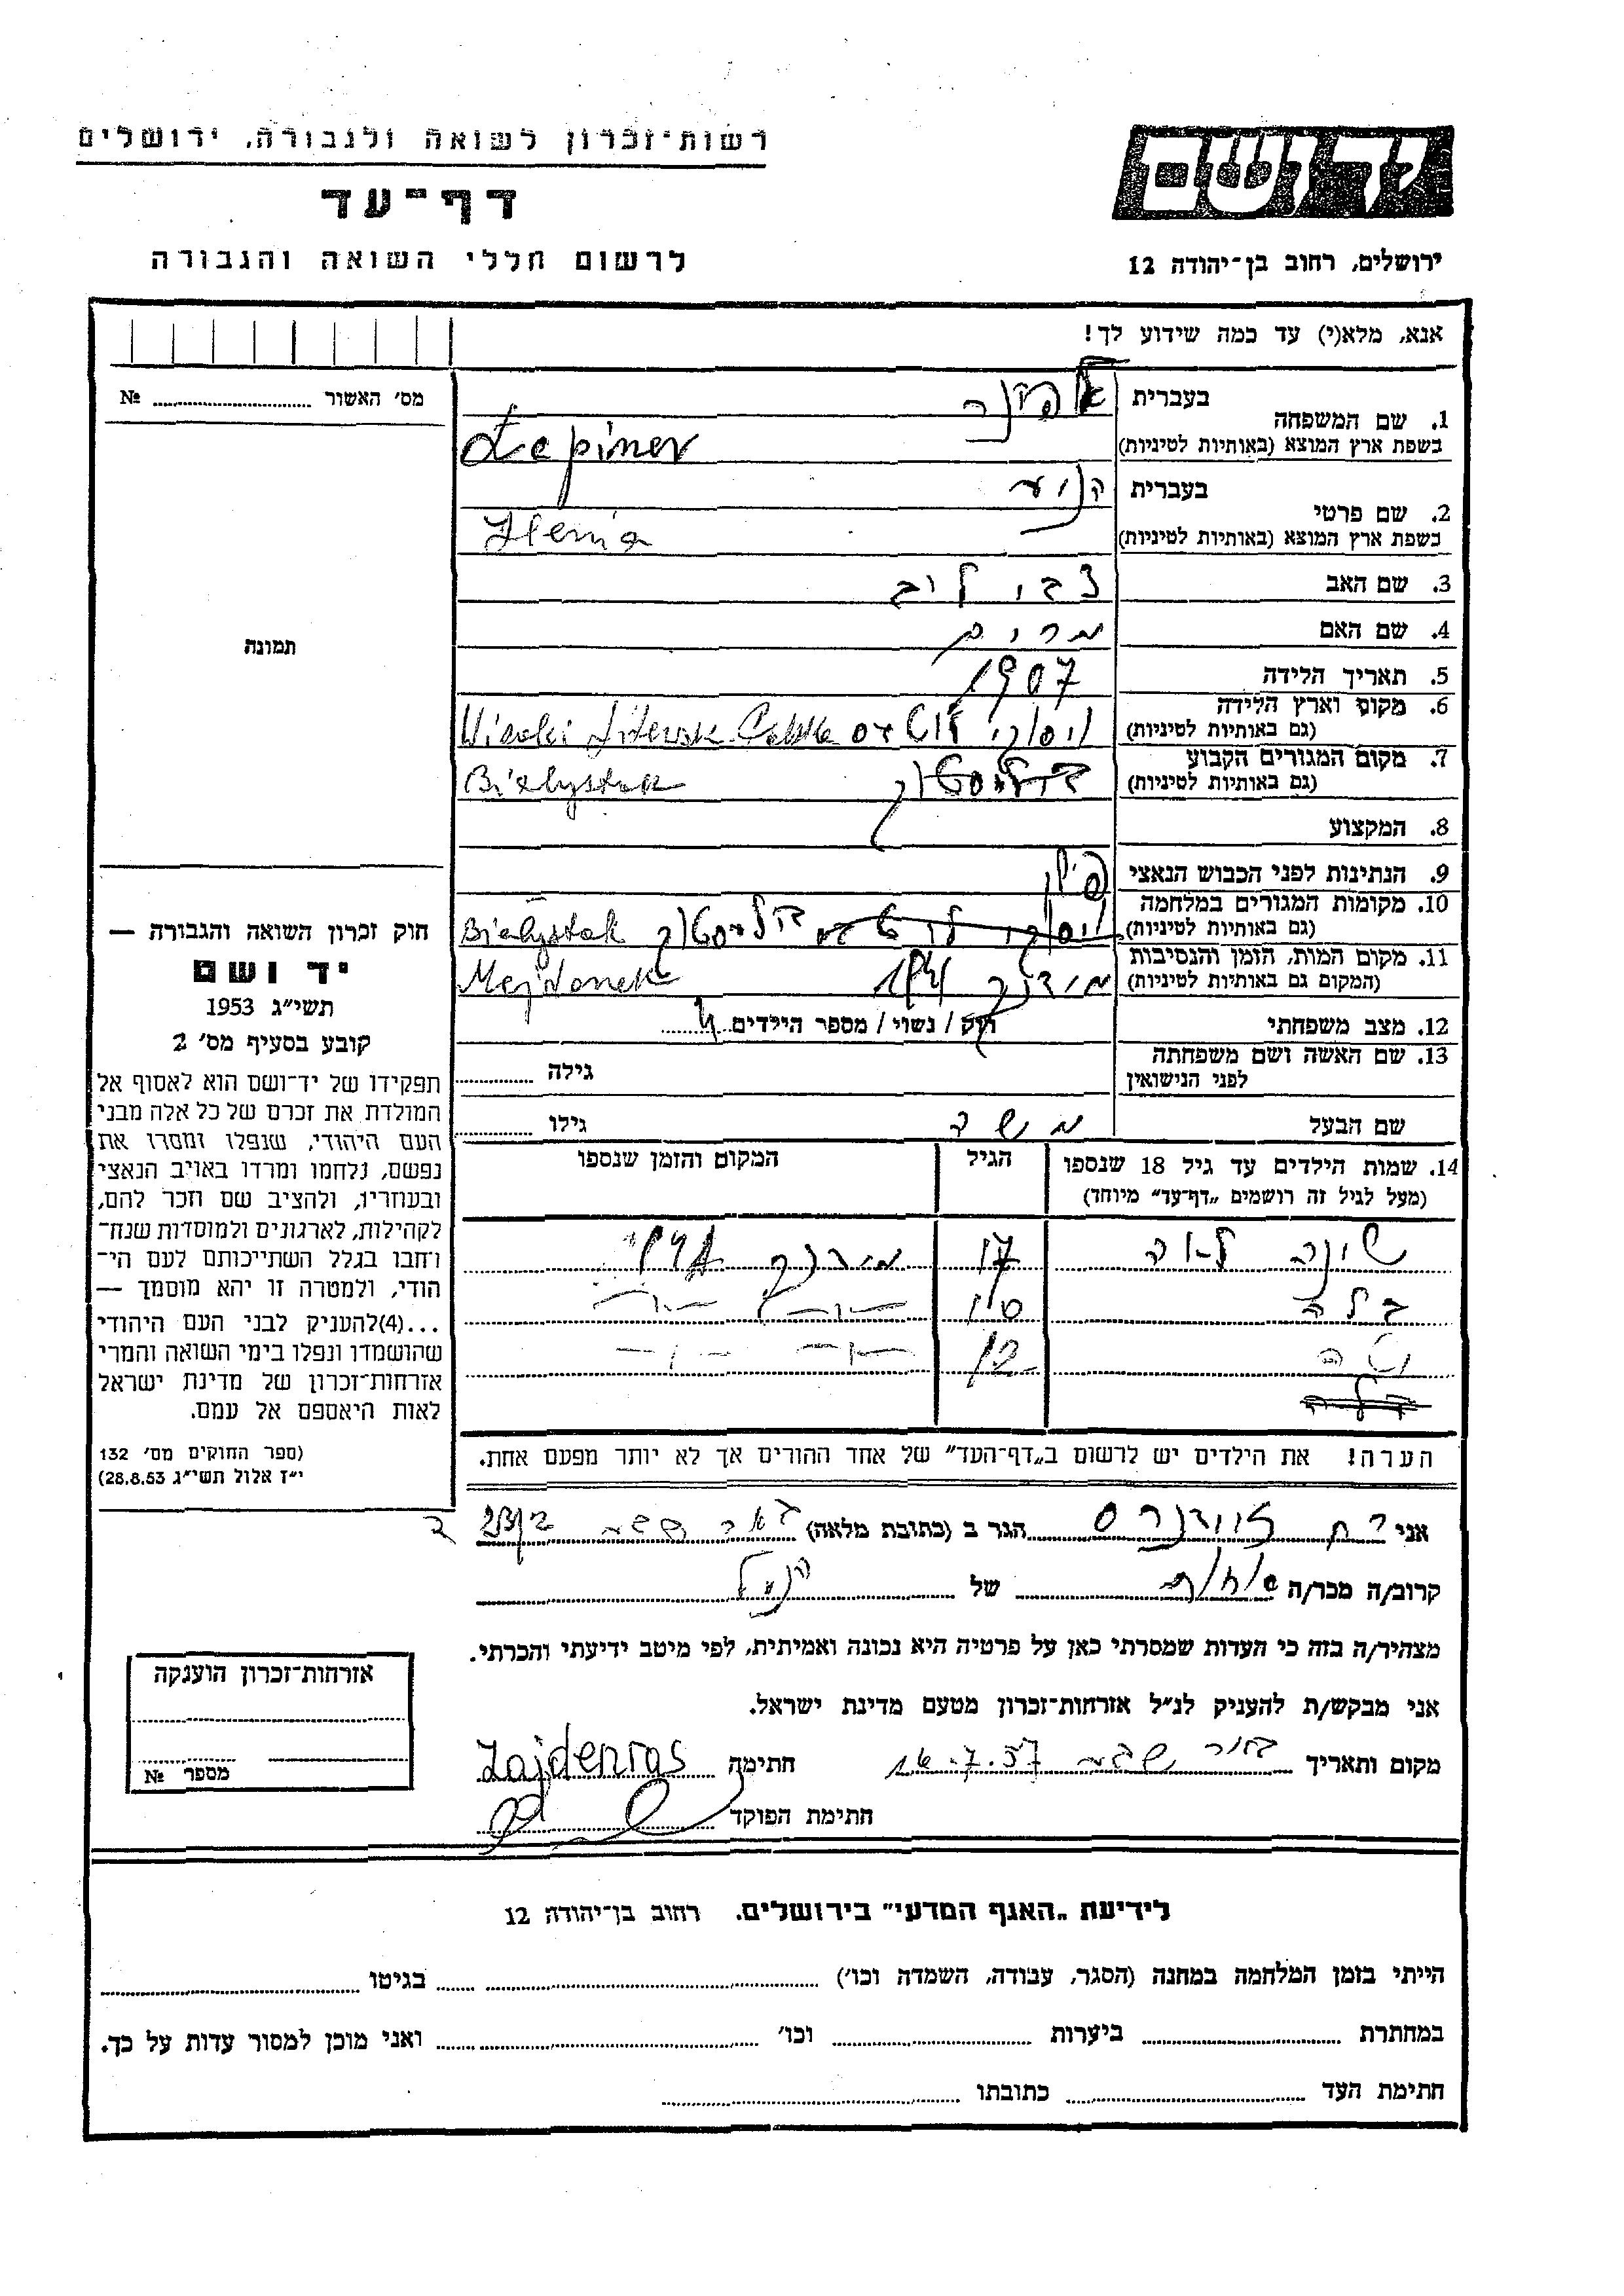 רשות־זכרון לשואה ולגבורה, ירושלים
דף־עד
לרשום חללי השואה והגבורה
ידושם
ירושלים, רחוב בן־יהודה 12
אנא, מלא(י) עד כמה שידוע לך!
מס׳ האשור № 
1. שם המשפחה
בעברית
בשפת ארץ המוצא (באותיות לטיניות) Łepiner
2. שם פרטי
בעברית
בשפת ארץ המוצא (באותיות לטיניות) Henia
3. שם האב צבי לוב
4. שם האם מרים
5. תאריך הלידה 1907
6. מקום וארץ הלידה
(גם באותיות לטיניות)
7. מקום המגורים הקבוע ביאליסטוק
(גם באותיות לטיניות) Bialystok
8. המקצוע
9. הנתינות לפני הכבוש הנאצי
10. מקומות המגורים במלחמה
(גם באותיות לטיניות) ביאליסטוק Bialystok
11. מקום המות, הזמן והנסיבות
(המקום גם באותיות לטיניות) Mejdanek
12. מצב משפחתי רוק / נשוי / מספר הילדים
13. שם האשה ושם משפחתה
לפני הנישואין גילה
שם הבעל משה גילו
14. שמות הילדים עד גיל 18 שנספו
(מעל לגיל זה רושמים „דף־עד״ מיוחד)
הגיל
המקום והזמן שנספו
שינה לאה 17
בלה
12
הערה! את הילדים יש לרשום ב„דף־העד״ של אחד ההורים אך לא יותר מפעם אחת.
תמונה
חוק זכרון השואה והגבורה —
יד ושם
תשי״ג 1953
קובע בסעיף מס׳ 2
תפקידו של יד־ושם הוא לאסוף אל
המולדת את זכרם של כל אלה מבני
העם היהודי, שנפלו ומסרו את
נפשם, נלחמו ומרדו באויב הנאצי
ובעוזריו, ולהציב שם וזכר להם,
לקהילות, לארגונים ולמוסדות שנח־
רחבו בגלל השתייכותם לעם הי־
הודי, ולמטרה זו יהא מוסמך —
...(4)להעניק לבני העם היהודי
שהושמדו ונפלו בימי השואה והמרי
אזרחות־זכרון של מדינת ישראל
לאות היאספם אל עמם.
(ספר החוקים מס׳ 132
י״ז אלול תשי״ג 28.8.53)
אני זיידנרס הגר ב (כתובת מלאה) באר שבע
קרוב/ה מכר/ה של
מצהיר/ה בזה כי העדות שמסרתי כאן על פרטיה היא נכונה ואמיתית, לפי מיטב ידיעתי והכרתי.
אני מבקש/ת להעניק לנ״ל אזרחות־זכרון מטעם מדינת ישראל.
מקום ותאריך באר שבע 16.7.57 חתימה Zajdenras
חתימת הפוקד
אזרחות־זכרון הוענקה
מספר №
לידיעת „האגף המדעי״ בירושלים. רחוב בן־יהודה 12
הייתי בזמן המלחמה במחנה (הסגר, עבודה, השמדה וכו׳) בגיטו
במחתרת ביערות וכו׳ ואני מוכן למסור עדות על כך.
חתימת העד כתובתו